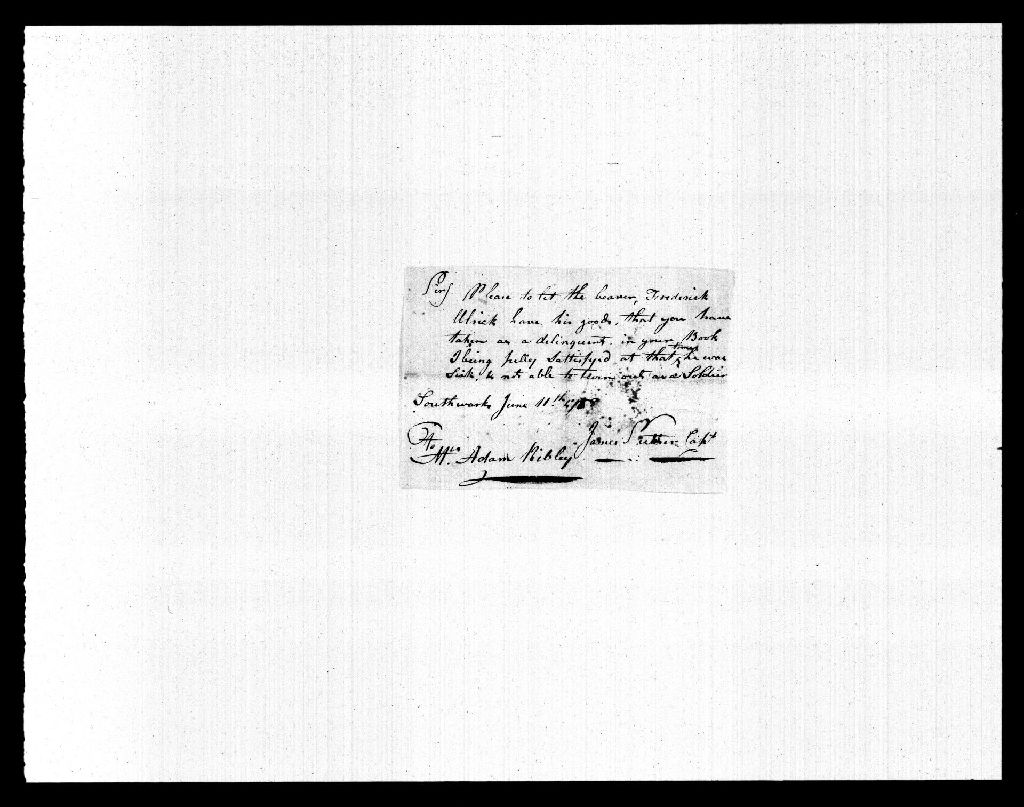 Sir Please to let the bearer, Frederick
Ulrick have his goods, that you have
taken as a delinquent, in your Book
I being fully Sattisfyed at that time he was
Sick, & not able to turn out as a Soldier
Southwark June 11th
James Capt
To
Mr. Adam Kibley